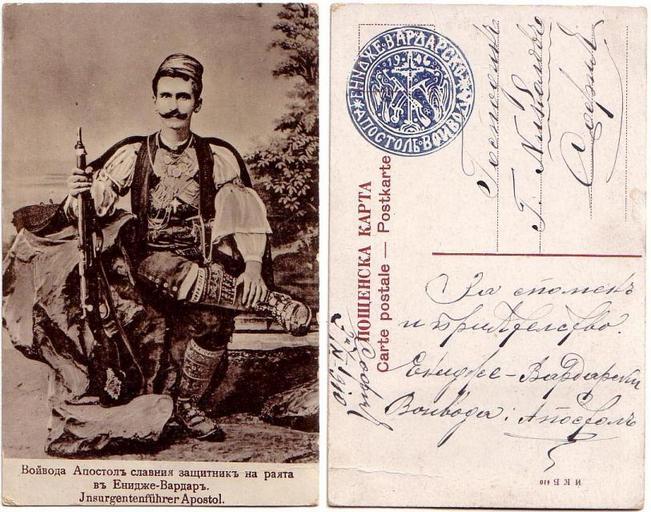 Войвода Апостолъ славния защитникъ на раята
въ Енидже-Вардаръ.
Jnsurgentenführer Apostol.
ЕНИДЖЕ ВАРДАРСКИ
АПОСТОЛЪ ВОЙВОДА
ПОЩЕНСКА КАРТА
Carte postale — Postkarte
Господинъ
Г. Николовъ
София
За споменъ
и приятелство.
Енидже-Вардарски
Войвода: Апостолъ
София
И К Б